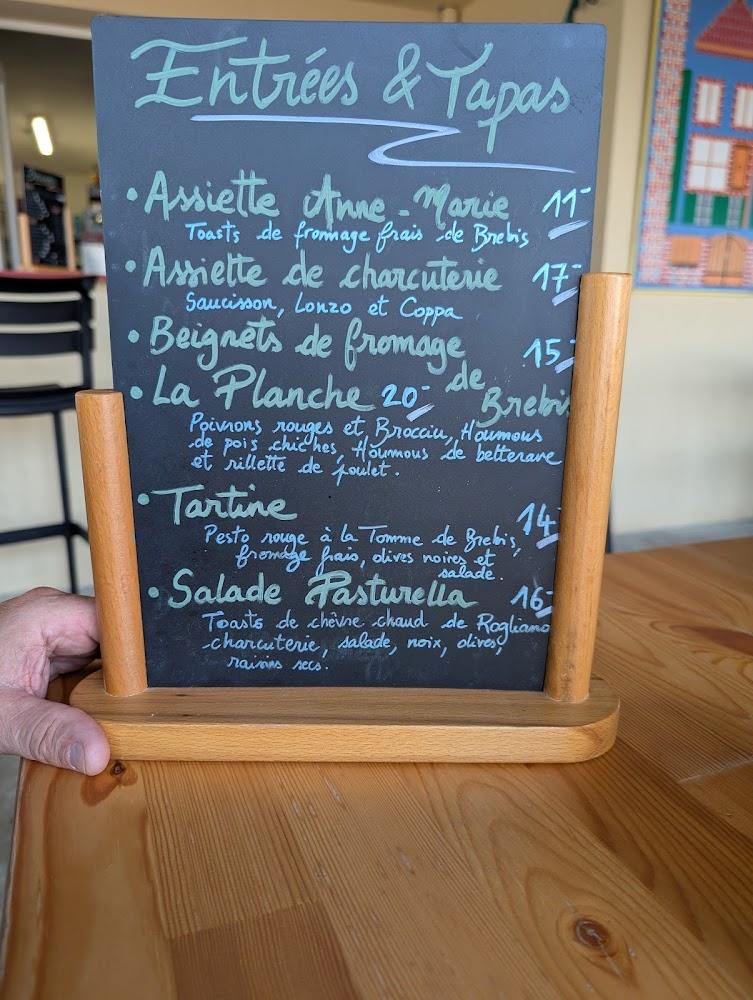 Entrées & Tapas
• Assiette Anne-Marie 11-
Toasts de fromage frais de Brebis
• Assiette de charcuterie 17-
Saucisson, Lonzo et Coppa
• Beignets de fromage de Brebis 15-
• La Planche 20-
Poivrons rouges et Brocciu, Houmous
de pois chiches, Houmous de betterave
et rillette de poulet.
• Tartine 14-
Pesto rouge à la Tomme de Brebis,
fromage frais, olives noires et
salade.
• Salade Pasturella 16-
Toasts de chèvre chaud de Rogliano
charcuterie, salade, noix, olives,
raisins secs.